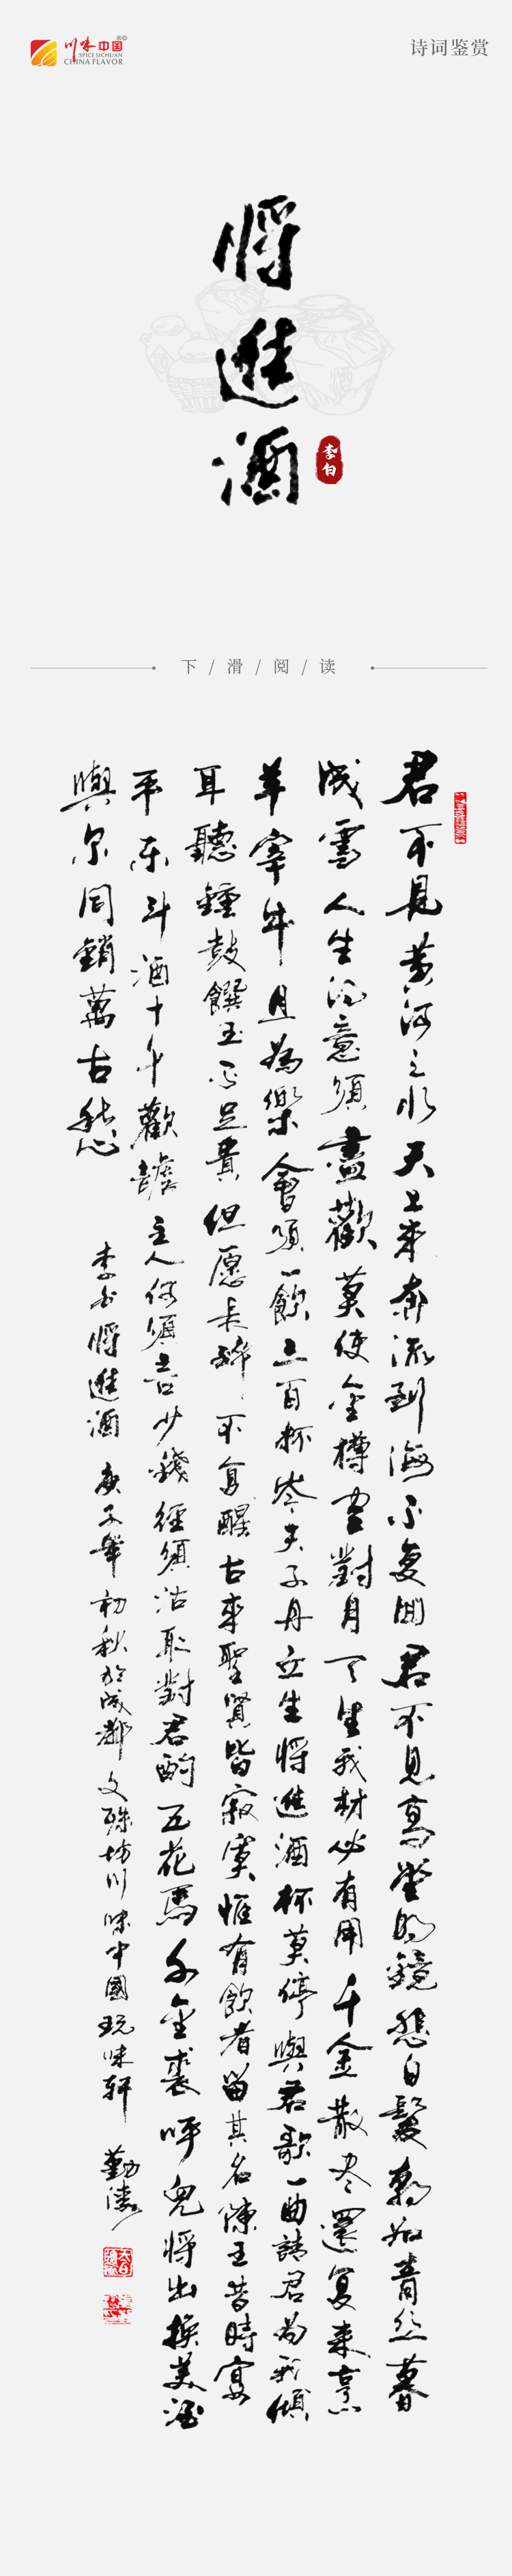 川味中国®©
SPICE SICHUAN
CHINA FLAVOR
诗词鉴赏
将
進
酒
李白
下 / 滑 / 阅 / 读
君不見黄河之水天上来奔流到海不复回君不見高堂明鏡悲白髮朝如青丝暮
成雪人生得意須盡歡莫使金樽空對月天生我材必有用千金散尽還复来烹
羊宰牛且為樂會須一飲三百杯岑夫子丹丘生将進酒杯莫停與君歌一曲請君為我傾
耳聽鐘鼓饌玉不足貴但愿長醉不复醒古来聖賢皆寂寞惟有飲者留其名陳王昔時宴
平乐斗酒十千歡謔主人何須言少錢徑須沽取對君酌五花馬千金裘呼兒将出换美酒
與尔同銷萬古愁
李白将進酒 庚子年初秋於成都文殊坊川味中國玩味轩